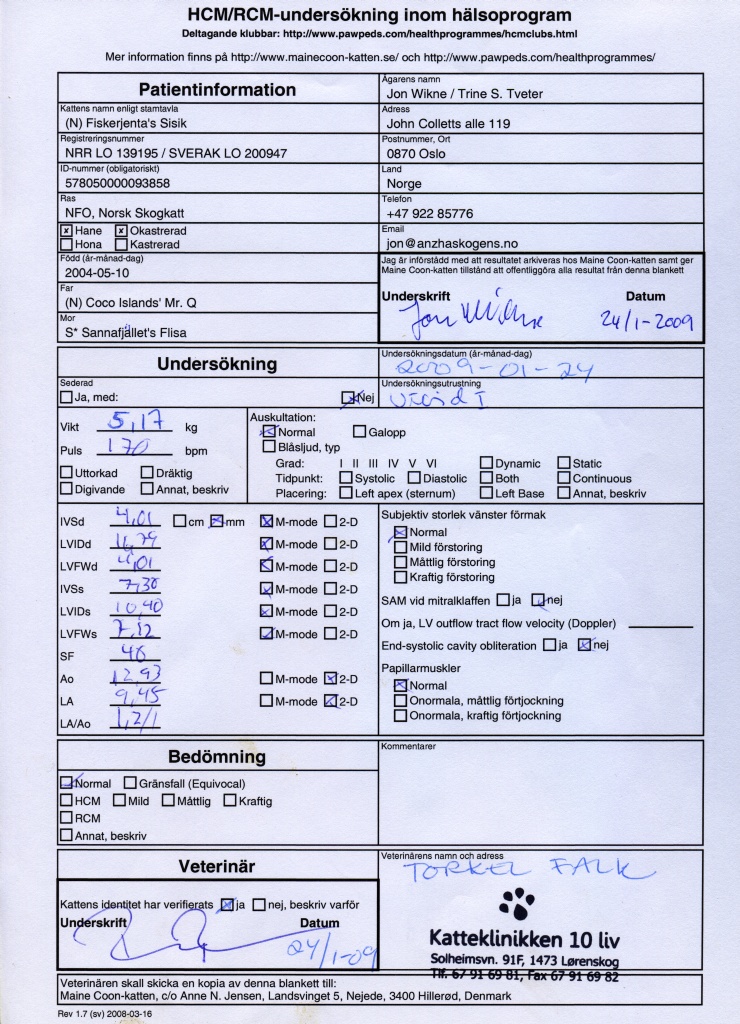 HCM/RCM-undersökning inom hälsoprogram
Deltagande klubbar: http://www.pawpeds.com/healthprogrammes/hcmclubs.html
Mer information finns på http://www.mainecoon-katten.se/ och http://www.pawpeds.com/healthprogrammes/
Patientinformation
Kattens namn enligt stamtavla
(N) Fiskerjenta's Sisik
Registreringsnummer
NRR LO 139195 / SVERAK LO 200947
ID-nummer (obligatoriskt)
578050000093858
Ras
NFO, Norsk Skogkatt
x Hane x Okastrerad
Hona Kastrerad
Född (år-månad-dag)
2004-05-10
Far
(N) Coco Islands' Mr. Q
Mor
S* Sannafjället's Flisa
Ägarens namn
Jon Wikne / Trine S. Tveter
Adress
John Colletts alle 119
Postnummer, Ort
0870 Oslo
Land
Norge
Telefon
+47 922 85776
Email
jon@anzhaskogens.no
Jag är införstådd med att resultatet arkiveras hos Maine Coon-katten samt ger
Maine Coon-katten tillstånd att offentliggöra alla resultat från denna blankett
Underskrift Datum
Jon Wikne 24/1-2009
Undersökning
Sederad
Ja, med: Nej
Undersökningsdatum (år-månad-dag)
2009-01-24
Undersökningsutrustning
Vivid I
Vikt 5,17 kg
Puls 170 bpm
Uttorkad Dräktig
Digivande Annat, beskriv
Auskultation:
Normal Galopp
Blåsljud, typ
Grad: I II III IV V VI Dynamic Static
Tidpunkt: Systolic Diastolic Both Continuous
Placering: Left apex (sternum) Left Base Annat, beskriv
IVSd 4,01 cm mm M-mode 2-D
LVIDd 16,79 M-mode 2-D
LVFWd 4,01 M-mode 2-D
IVSs 7,30 M-mode 2-D
LVIDs 10,40 M-mode 2-D
LVFWs 7,12 M-mode 2-D
SF
Ao 12,93 M-mode 2-D
LA 9,45 M-mode 2-D
LA/Ao 1,2/1
Subjektiv storlek vänster förmak
Normal
Mild förstoring
Måttlig förstoring
Kraftig förstoring
SAM vid mitralklaffen ja nej
Om ja, LV outflow tract flow velocity (Doppler)
End-systolic cavity obliteration ja nej
Papillarmuskler
Normal
Onormala, måttlig förtjockning
Onormala, kraftig förtjockning
Bedömning
Normal Gränsfall (Equivocal)
HCM Mild Måttlig Kraftig
RCM
Annat, beskriv
Kommentarer
Veterinär
Kattens identitet har verifierats ja nej, beskriv varför
Underskrift Datum
24/1-09
Veterinärens namn och adress
TORKEL FALK
Katteklinikken 10 liv
Solheimsvn. 91F, 1473 Lørenskog
Tlf. 67 91 69 81, Fax 67 91 69 82
Veterinären skall skicka en kopia av denna blankett till:
Maine Coon-katten, c/o Anne N. Jensen, Landsvinget 5, Nejede, 3400 Hillerød, Denmark
Rev 1.7 (sv) 2008-03-16